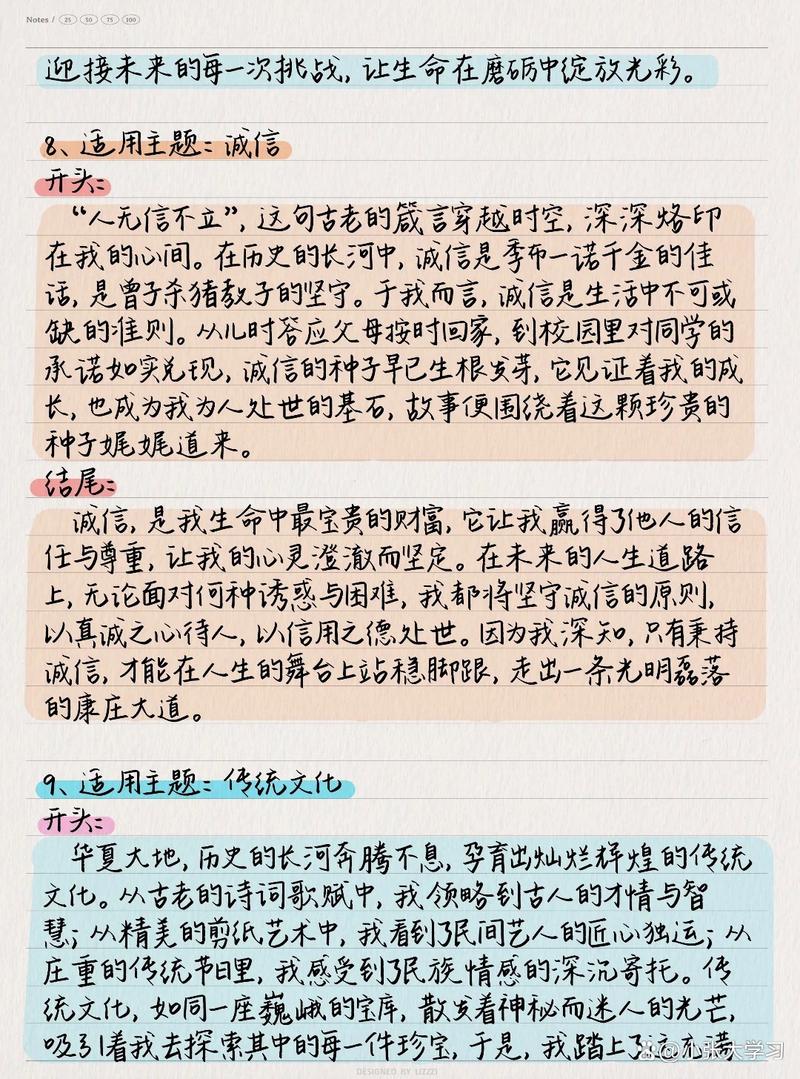 Notes / 25 50 75 100
迎接未来的每一次挑战，让生命在磨砺中绽放光彩。
8、适用主题：诚信
开头：
“人无信不立”，这句古老的箴言穿越时空，深深烙印
在我的心间。在历史的长河中，诚信是季布一诺千金的佳
话，是曾子杀猪教子的坚守。于我而言，诚信是生活中不可或
缺的准则。从儿时答应父母按时回家，到校园里对同学的
承诺如实兑现，诚信的种子早已生根发芽，它见证着我的成
长，也成为我为人处世的基石，故事便围绕着这颗珍贵的
种子娓娓道来。
结尾：
诚信，是我生命中最宝贵的财富，它让我赢得了他人的信
任与尊重，让我的心灵澄澈而坚定。在未来的人生道路
上，无论面对何种诱惑与困难，我都将坚守诚信的原则，
以真诚之心待人，以信用之德处世。因为我深知，只有秉持
诚信，才能在人生的舞台上站稳脚跟，走出一条光明磊落
的康庄大道。
9、适用主题：传统文化
开头：
华夏大地，历史的长河奔腾不息，孕育出灿烂辉煌的传统
文化。从古老的诗词歌赋中，我领略到古人的才情与智
慧；从精美的剪纸艺术中，我看到了民间艺人的匠心独运；从
庄重的传统节日里，我感受到了民族情感的深沉寄托。传
统文化，如同一座巍峨的宝库，散发着神秘而迷人的光芒，
吸引着我去探索其中的每一件珍宝，于是，我踏上了
@小张大学习
DESIGNED BY LIZZZI